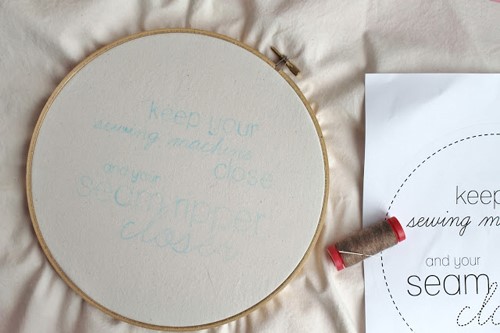 keep your
sewing machine
close
and your
seam ripper
closer
keep
sewing m
and your
seam
clo